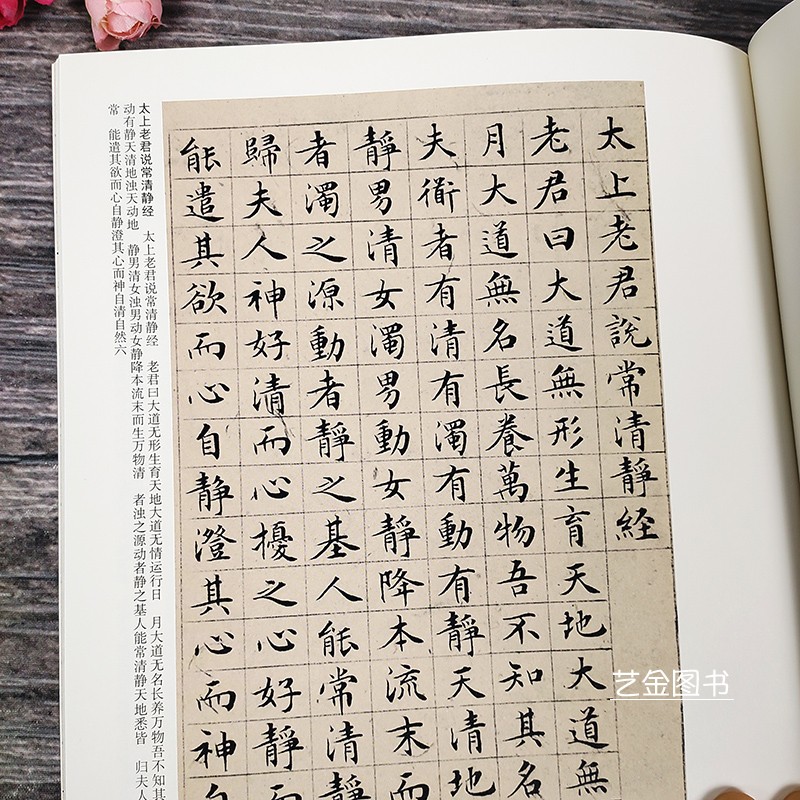 太上老君說常清靜經
老君曰大道無形生育天地大道無
月大道無名長養萬物吾不知其名
夫衜者有清有濁有動有靜天清地
靜男清女濁男動女靜降本流末而
者濁之源動者靜之基人能常清靜
歸夫人神好清而心擾之心好靜而
能遣其欲而心自静澄其心而神自
太上老君说常清静经 太上老君说常清静经 老君曰大道无形生育天地大道无情运行日 月大道无名长养万物吾不知其
动有静天清地浊天动地 静男清女浊男动女静降本流末而生万物清 者浊之源动者静之基人能常清静天地悉皆 归夫人
常 能遣其欲而心自静澄其心而神自清自然六
艺金图书